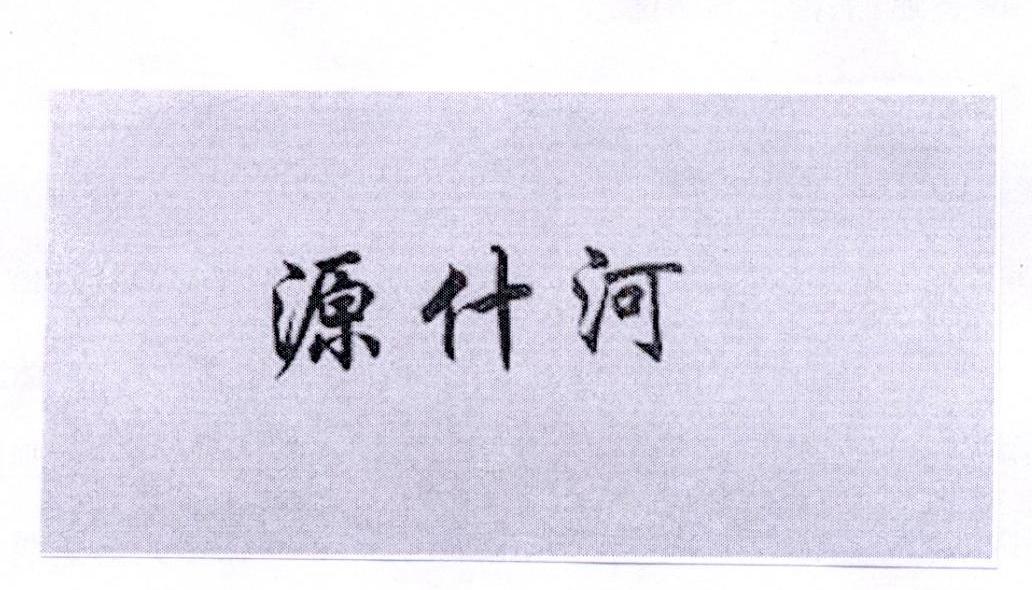 源什河